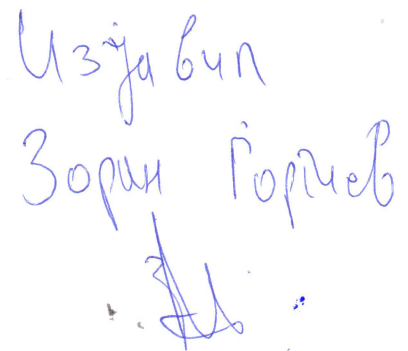 Изјавил
Зоран Ѓорѓиев